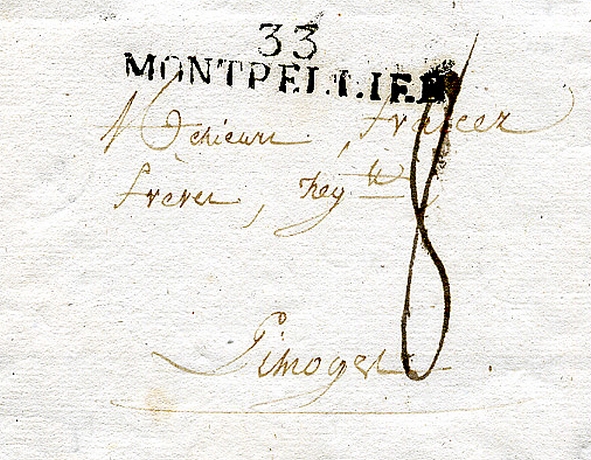 33
MONTPELLIER
Messieurs, francez
freres, neg ts
8
Limoges